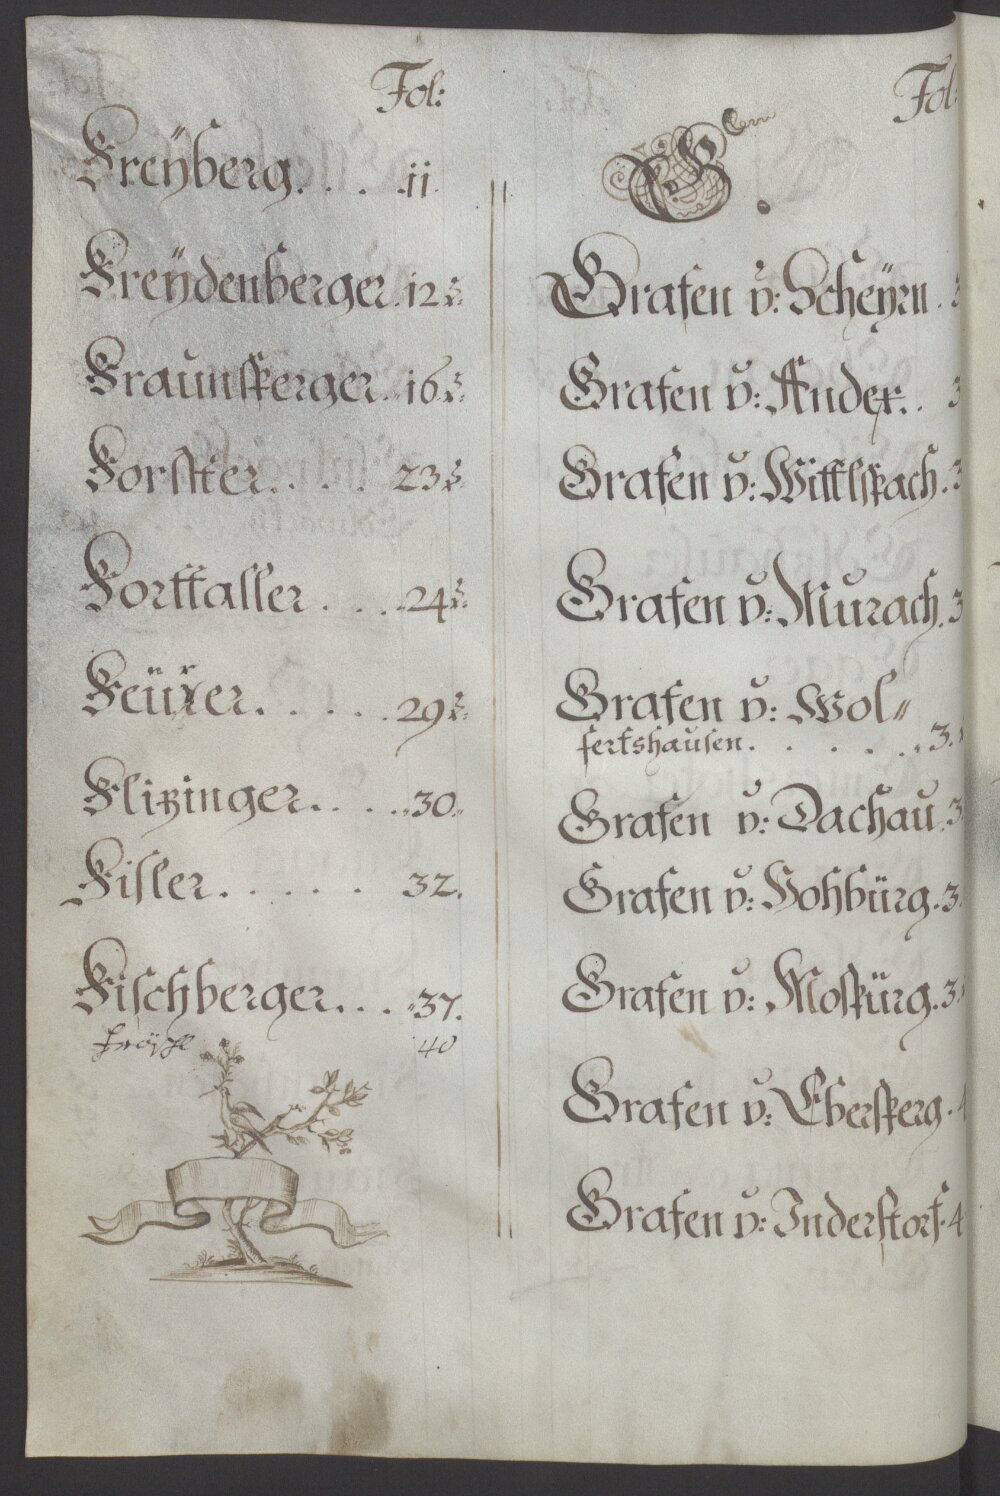 Fol:
Freÿberg. . . . . 11.
Freÿdenberger. 12 &:
Fraunsperger. . 16 &:
Forstter. . . . . 23 &:
Forttaller . . . . 24 &:
Feürer. . . . . . 29 &:
Flizinger. . . . . 30.
Fisler. . . . . . 32.
Fischberger. . . . 37.
40
Fol:
G.
Grafen v: Scheÿrn . 3
Grafen v: Andex. . 3
Grafen v: Wittlspach. 3
Grafen v: Murach. 3
Grafen v: Wol=
fertshausen. . . . . . 3.
Grafen v: Dachau. 3
Grafen v: Vohbürg. 3.
Grafen v: Mospürg. 3.
Grafen v: Ebersperg. 4
Grafen v: Inderstorf. 4